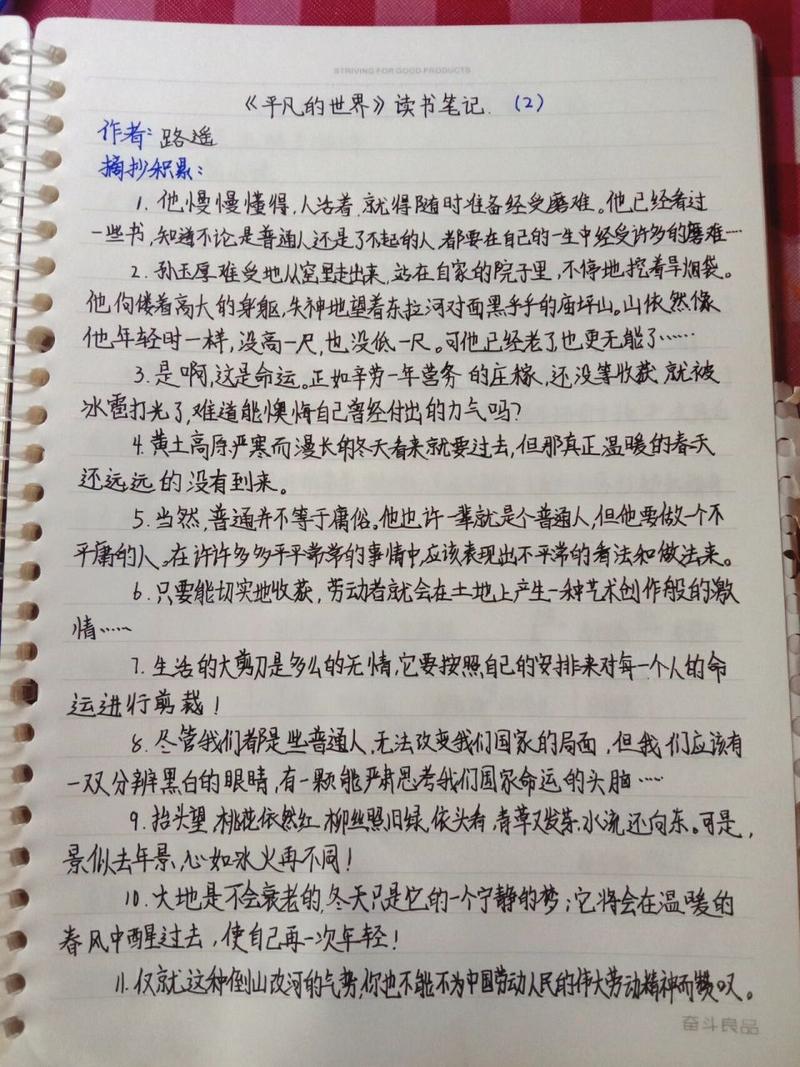 STRIVING FOR GOOD PRODUCTS
《平凡的世界》读书笔记.（2）
作者：路遥
摘抄积累：
1. 他慢慢懂得，人活着，就得随时准备经受磨难。他已经看过
一些书，知道不论是普通人还是了不起的人，都要在自己的一生中经受许多的磨难…
2. 孙玉厚难受地从窑里走出来，站在自家的院子里，不停地挖着旱烟袋。
他佝偻着高大的身躯，失神地望着东拉河对面黑乎乎的庙坪山。山依然像
他年轻时一样，没高一尺，也没低一尺。可他已经老了，也更无能了……
3. 是啊，这是命运。正如辛劳一年营务的庄稼，还没等收获就被
冰雹打光了，难道能懊悔自己曾经付出的力气吗？
4. 黄土高原严寒而漫长的冬天看来就要过去，但那真正温暖的春天
还远远的没有到来。
5. 当然，普通并不等于庸俗。他也许一辈就是个普通人，但他要做一个不
平庸的人。在许许多多平平常常的事情中，应该表现出不平常的看法和做法来。
6. 只要能切实地收获，劳动者就会在土地上产生一种艺术创作般的激
情……
7. 生活的大剪刀是多么的无情，它要按照自己的安排来对每一个人的命
运进行剪裁！
8. 尽管我们都是些普通人，无法改变我们国家的局面，但我们应该有
一双分辨黑白的眼睛，有一颗能严肃思考我们国家命运的头脑……
9. 抬头望，桃花依然红，柳丝照旧绿，低头看，青草又发芽，水流还向东。可是，
景似去年景，心如冰火再不同！
10. 大地是不会衰老的，冬天只是它的一个宁静的梦；它将会在温暖的
春风中醒过去，使自己再一次年轻！
11. 仅就这种倒山改河的气势，你也不能不为中国劳动人民的伟大劳动精神而赞叹。
奋斗良品